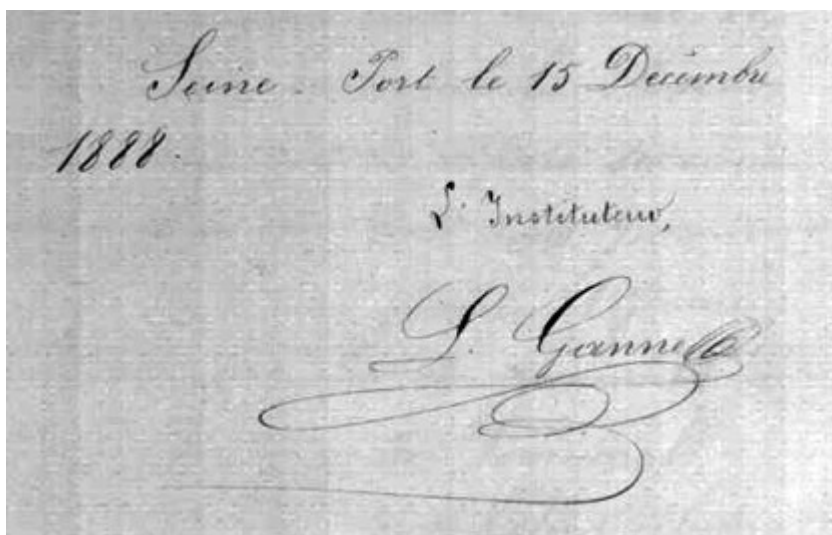 Seine-Port le 15 Décembre
1888.
L'Instituteur,
L. Ganne